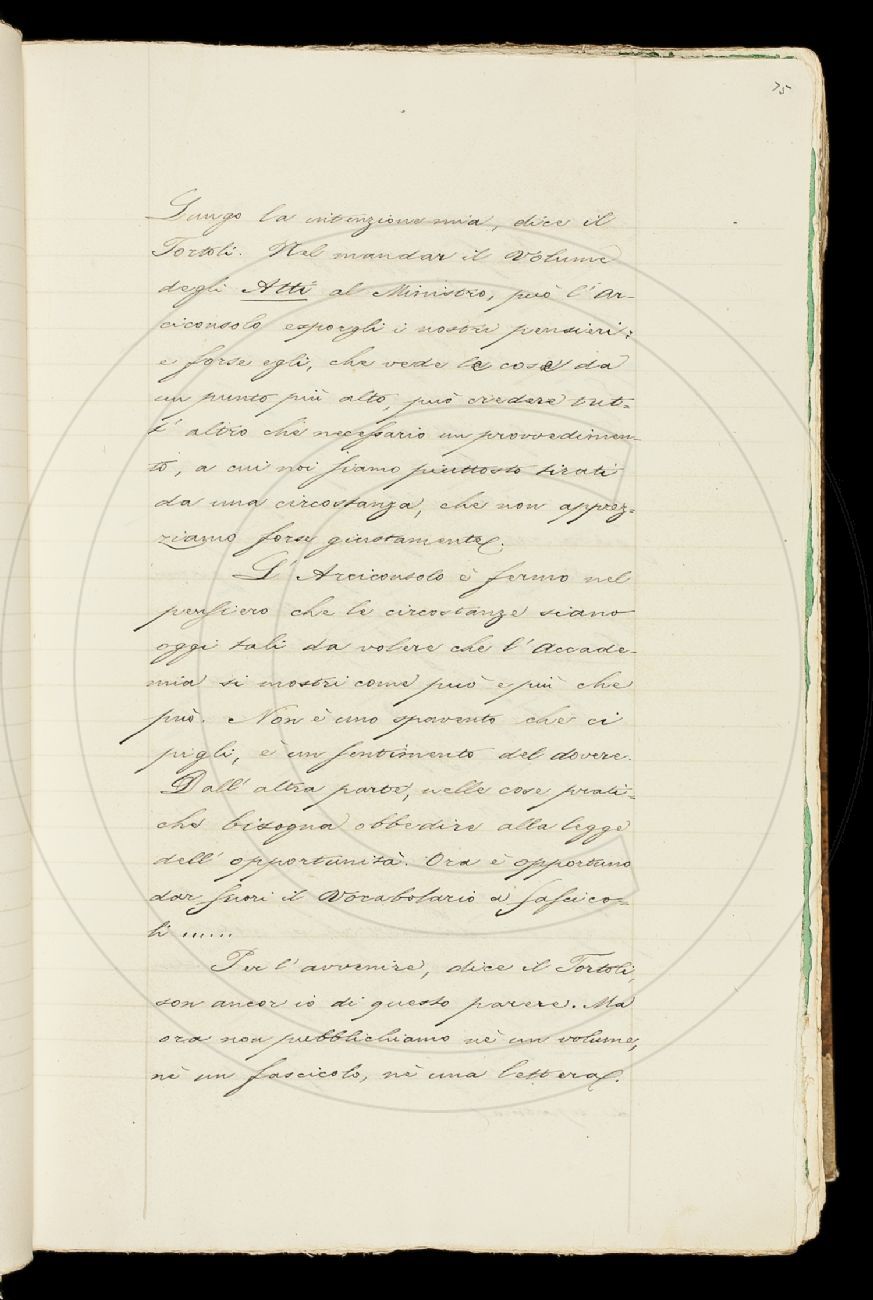 75
Lungo la intenzione mia, dice il
Tortoli. Nel mandar il Volume
degli Atti al Ministro, può l'Ar-
ciconsolo esporgli i nostri pensieri:
e forse egli, che vede le cose da
un punto più alto, può credere tut-
t'altro che necessario un provvedimen-
to, a cui noi siamo piuttosto tirati
da una circostanza, che non apprez-
ziamo forse giustamente.
L'Arciconsolo è fermo nel
pensiero che le circostanze siano
oggi tali da volere che l'Accade-
mia si mostri come può e più che
può. Non è uno spavento che ci
pigli, è un sentimento del dovere.
Dall'altra parte, nelle cose prati-
che bisogna obbedire alla legge
dell'opportunità. Ora è opportuno
dar fuori il Vocabolario a fascico-
li ......
Per l'avvenire, dice il Tortoli,
son ancor io di questo parere. Ma
ora non pubblichiamo nè un volume,
nè un fascicolo, nè una lettera.